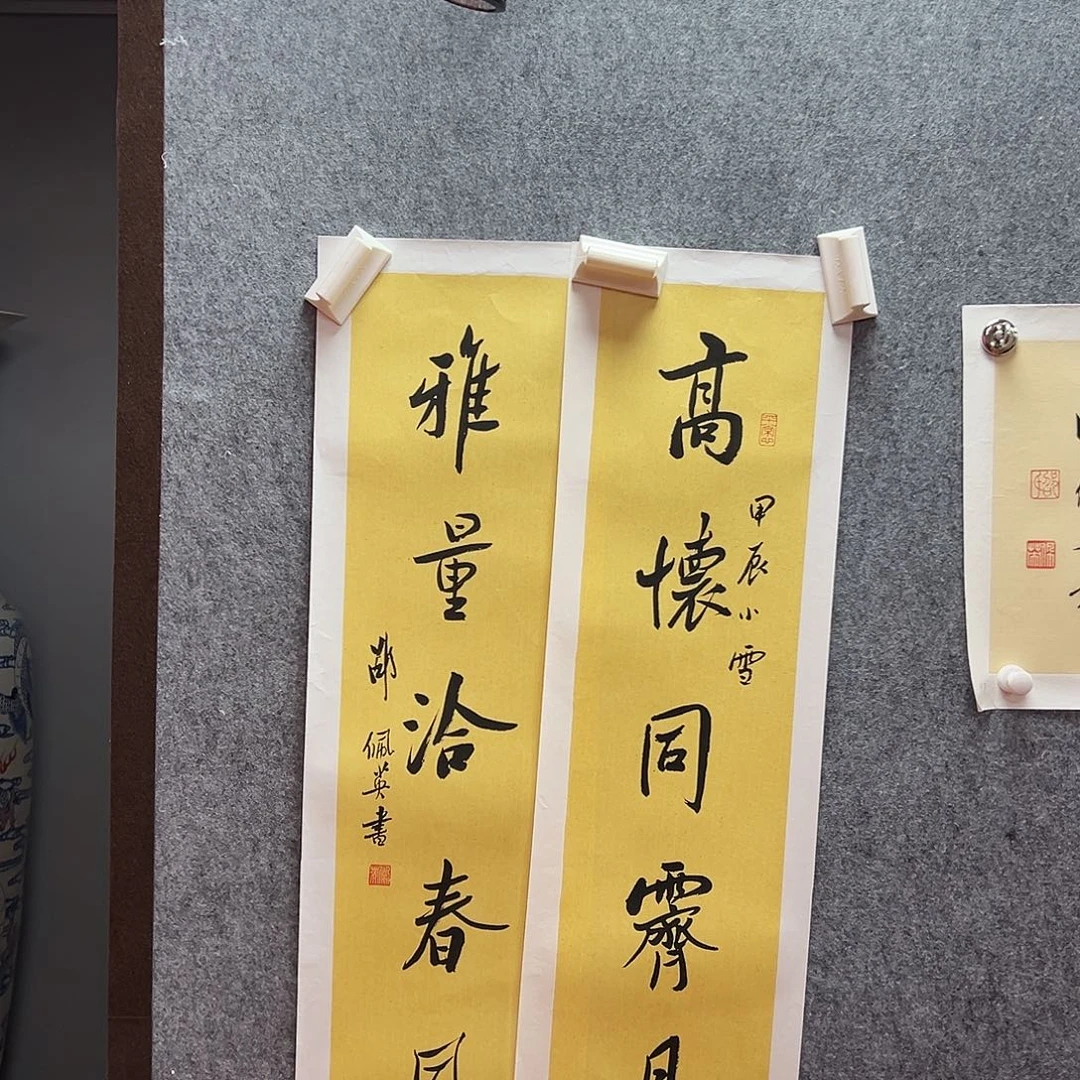 高懷同霽月
甲辰小雪
雅量洽春風
佩英書